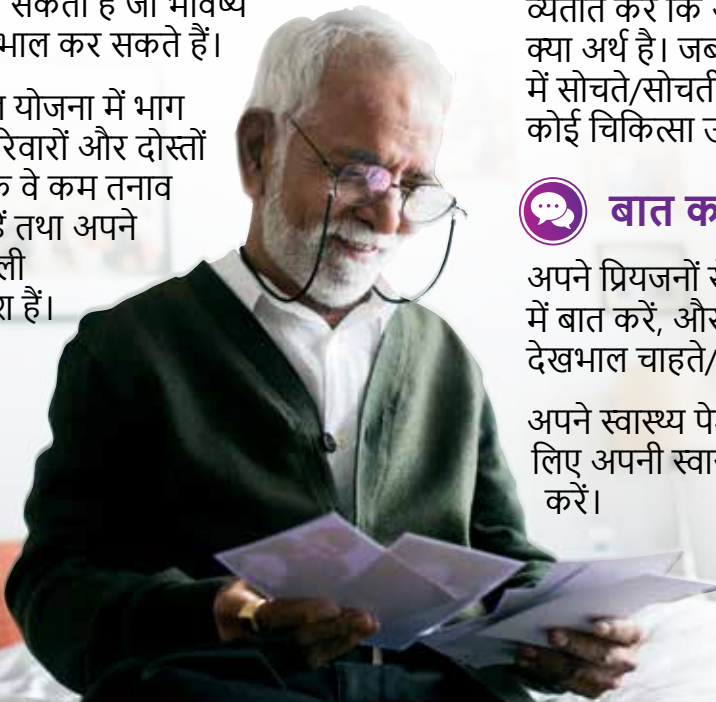 सकता है जो भविष्य
भाल कर सकते हैं।
योजना में भाग
रिवारों और दोस्तों
वे कम तनाव
हैं तथा अपने
ली
हैं।
व्यतीत करें कि
क्या अर्थ है। जब
में सोचते/सोचती
कोई चिकित्सा
बात क
अपने प्रियजनों से
में बात करें, और
देखभाल चाहते/
अपने स्वास्थ्य पे
लिए अपनी स्वा
करें।